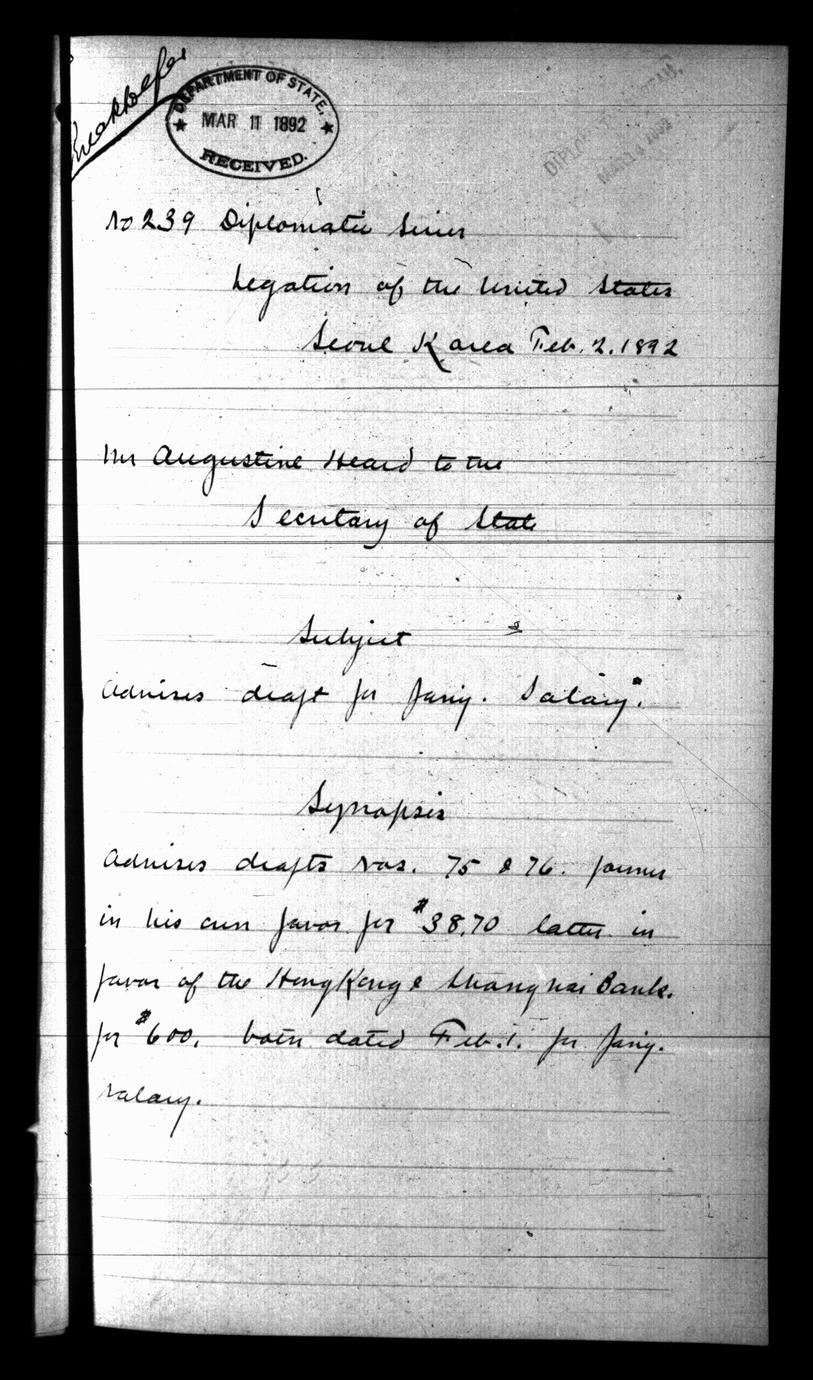 DEPARTMENT OF STATE.
MAR 11 1892
RECEIVED.
MAR 14 1892
No 239 Diplomatic Series
Legation of the United States
Seoul Korea Feb. 2. 1892
Mr Augustine Heard to the
Secretary of State
Subject
Advises draft for Jany. Salary.
Synopsis
Advises drafts nos. 75 & 76. former
in his own favor for $38.70 latter in
favor of the HongKong & Shanghai Bank.
for $600. both dated Feb. 1. for Jany.
salary.